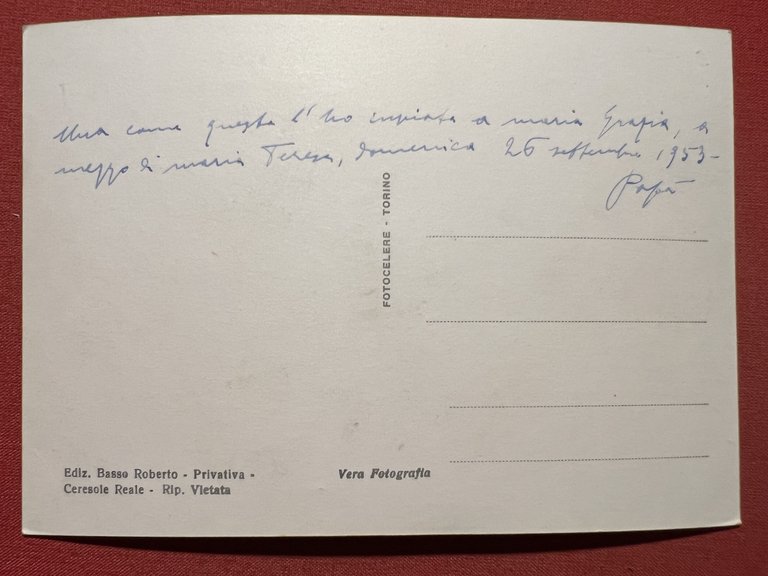 Una come questa l'ho inviata a maria Grazia, a
mezzo di maria Teresa, domenica 26 settembre 1953-
Papà
FOTOCELERE - TORINO
Ediz. Basso Roberto - Privativa -
Ceresole Reale - Rip. Vietata
Vera Fotografia